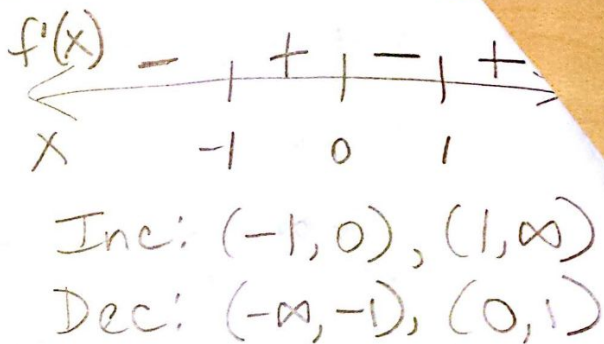 f'(x) - + - +
x -1 0 1
Inc: (-1, 0), (1, ∞)
Dec: (-∞, -1), (0, 1)